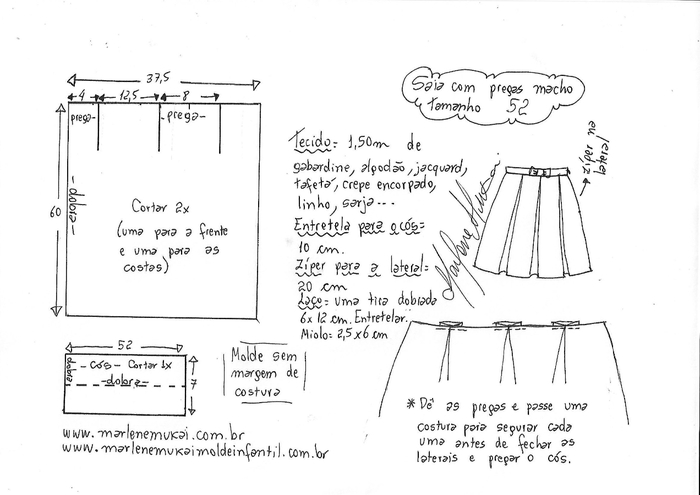 Saia com pregas macho
tamanho 52
37,5
4
12,5
8
prega
prega
dobra
60
Cortar 2x
(uma para a frente
e uma para as
costas)
Tecido= 1,50m de
gabardine, algodão, jacquard,
tafetá, crepe encorpado,
linho, sarja...
Entretela para o cós=
10 cm.
Zíper para a lateral=
20 cm
Laço= uma tira dobrada
6x12 cm. Entretelar.
Miolo= 2,5x6cm
Marlene Mukai
zíper na
lateral
52
dobra
- cós - Cortar 1x
- dobra -
7
Molde sem
margem de
costura
* Dê as pregas e passe uma
costura para segurar cada
uma antes de fechar as
laterais e pregar o cós.
www.marlenemukai.com.br
www.marlenemukaimoldeinfantil.com.br